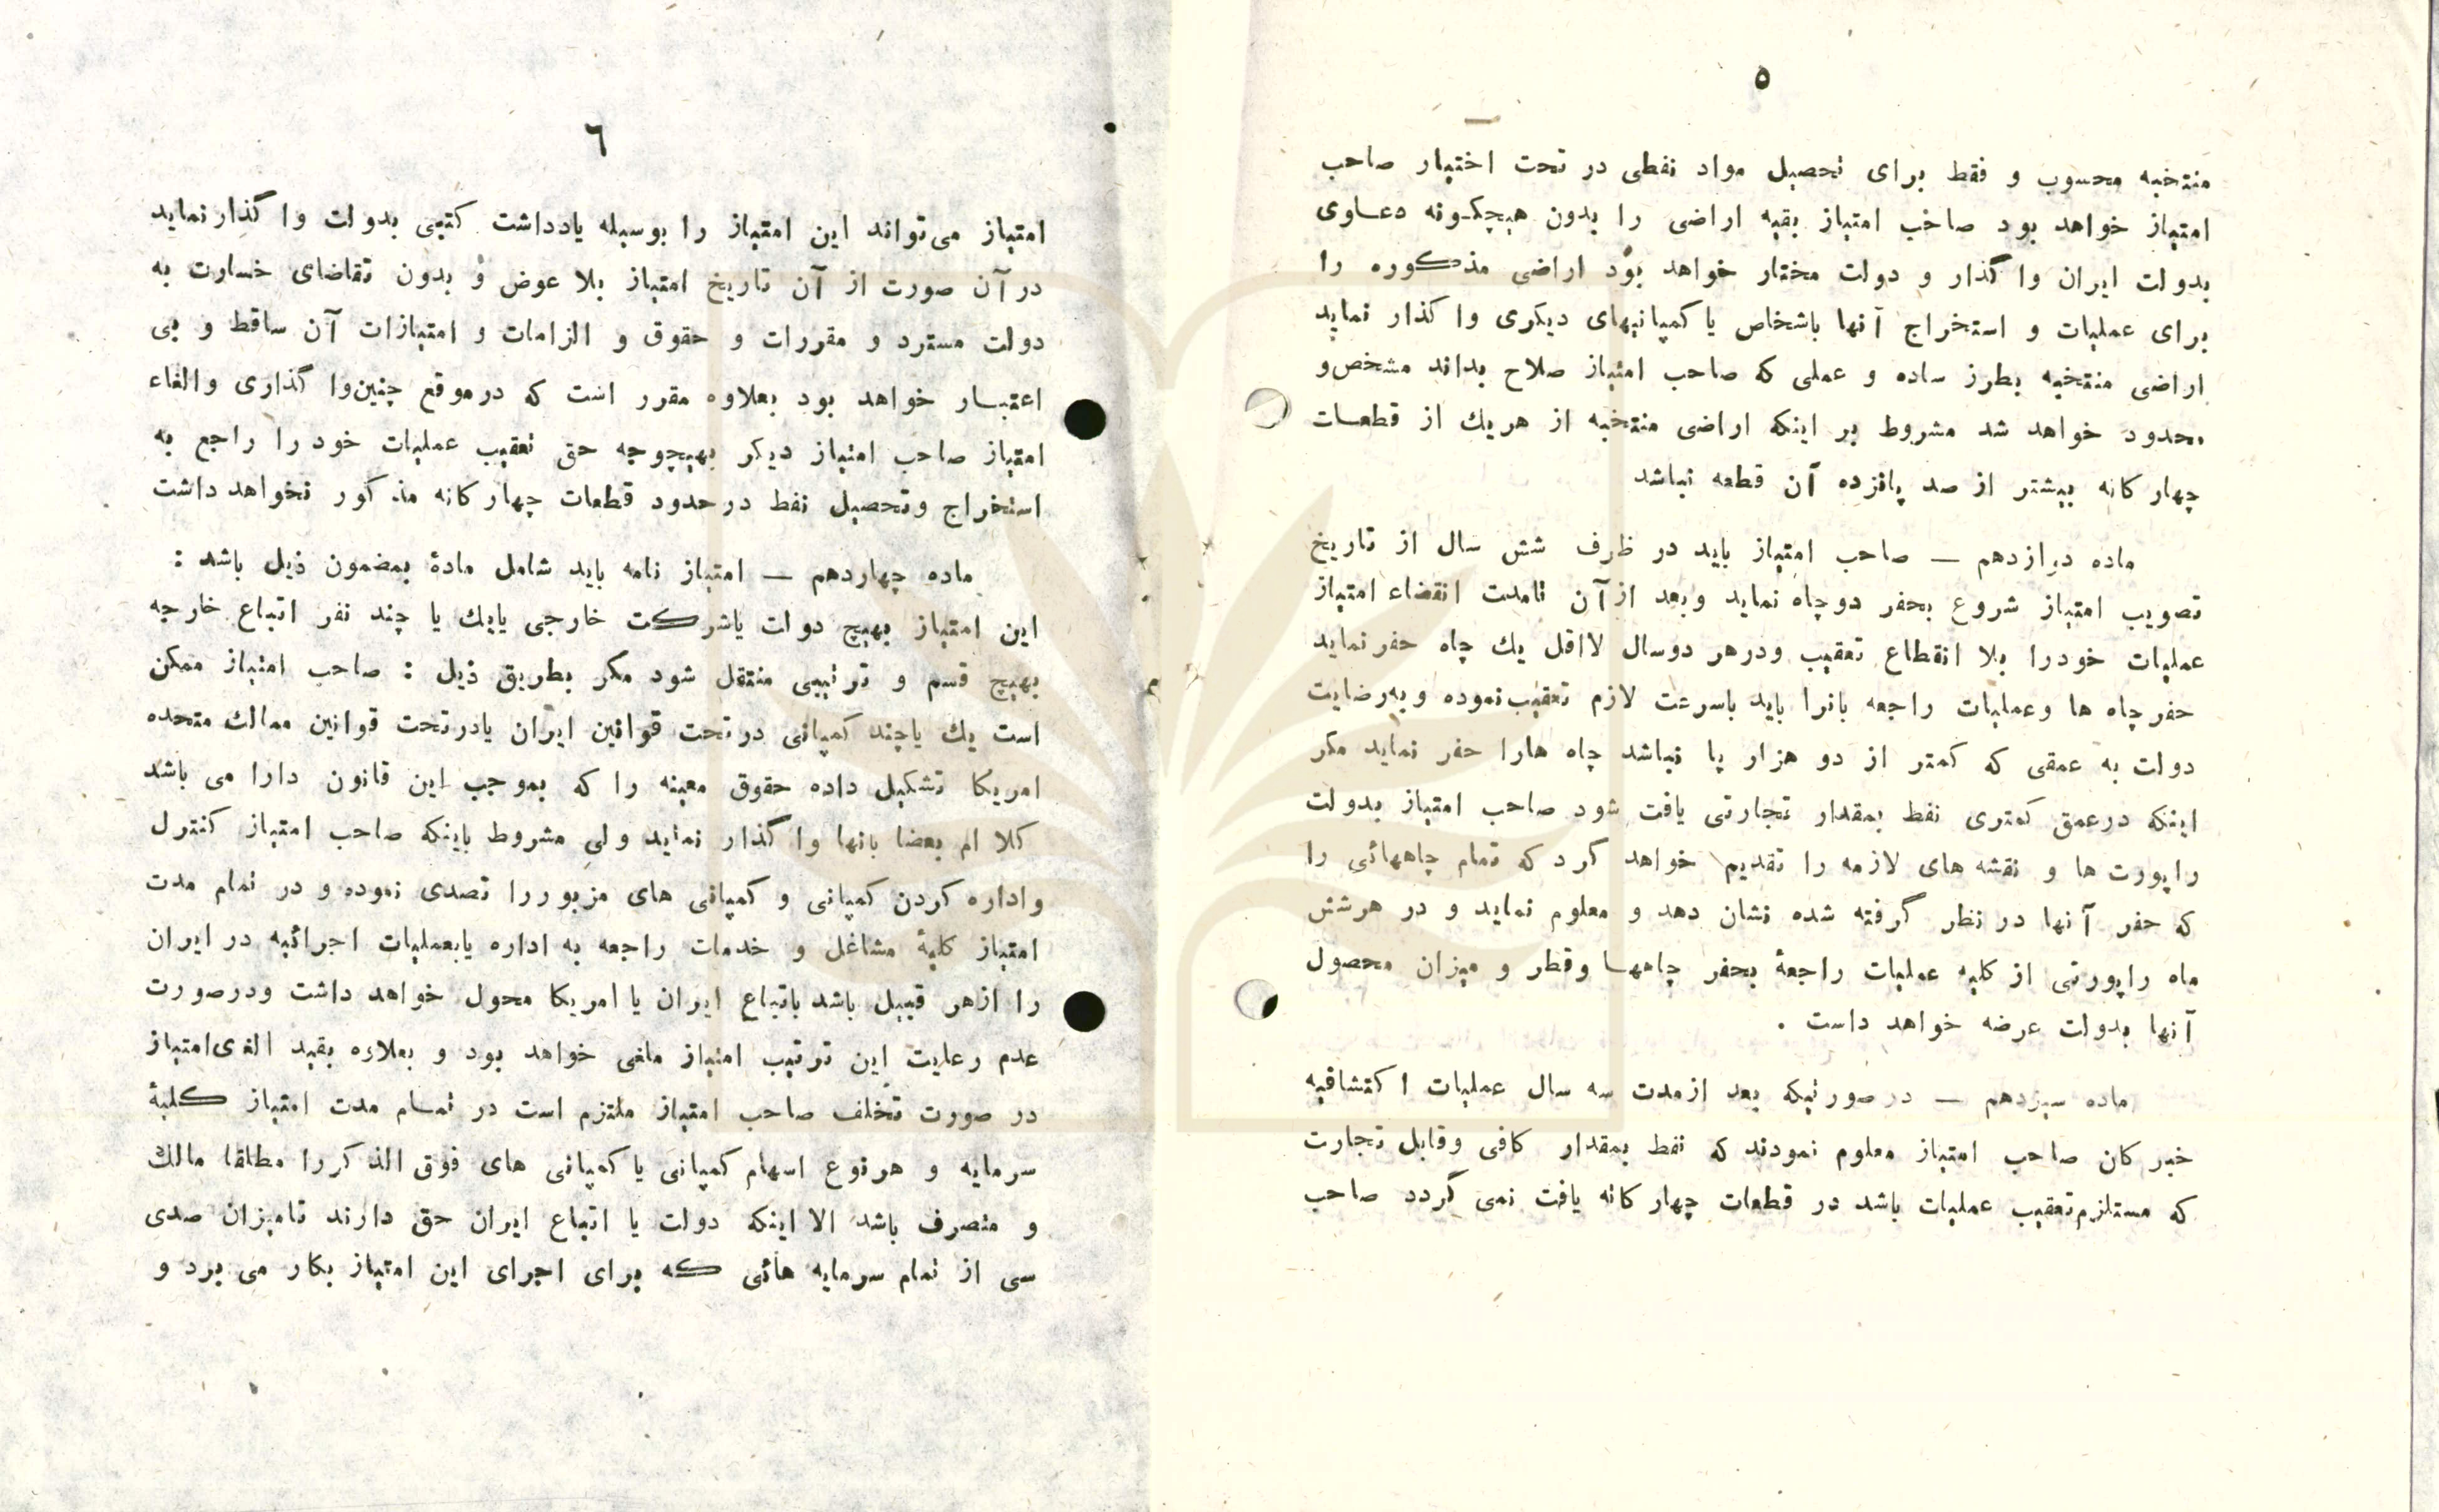 ٥
منتخبه محسوب و فقط برای تحصیل مواد نفطی در تحت اختیار صاحب
امتیاز خواهد بود صاخب امتیاز بقیه اراضی را بدون هیچگونه دعاوی
بدولت ایران وا گذار و دولت مختار خواهد بود اراضی مذکوره را
برای عملیات و استخراج آنها باشخاص یا کمپانیهای دیکری وا کذار نماید
اراضی منتخبه بطرز ساده و عملی که صاحب امتیاز صلاح بداند مشخص و
محدود خواهد شد مشروط بر اینکه اراضی منتخبه از هریك از قطعات
چهار کانه بیشتر از صد پانزده آن قطعه نباشد
ماده دوازدهم — صاحب امتیاز باید در ظرف شش سال از تاریخ
تصویب امتیاز شروع بحفر دوچاه نماید وبعد ازآن تامدت انقضاء امتیاز
عملیات خودرا بلا انقطاع تعقیب ودرهر دوسال لااقل یك چاه حفر نماید
حفر چاه ها وعملیات راجعه بانرا باید باسرعت لازم تعقیب نموده و به رضایت
دولت به عمقی که کمتر از دو هزار پا نباشد چاه هارا حفر نماید مکر
اینکه درعمق کمتری نفط بمقدار تجارتی یافت شود صاحب امتیاز بدولت
راپورت ها و نقشه های لازمه را تقدیم خواهد کرد که تمام چاههائی را
که حفر آنها در نظر گرفته شده نشان دهد و معلوم نماید و در هر شش
ماه راپورتی از کلیه عملیات راجعهٔ بحفر چاهها وقطر و میزان محصول
آنها بدولت عرضه خواهد داست .
ماده سیزدهم — در صورتیکه بعد ازمدت سه سال عملیات اکتشافیه
خبر کان صاحب امتیاز معلوم نمودند که نفط بمقدار کافی وقابل تجارت
که مستلزم تعقیب عملیات باشد در قطعات چهار کانه یافت نمی گردد صاحب
٦
امتیاز می‌تواند این امتیاز را بوسیله یادداشت کتبی بدولت وا گذار نماید
در آن صورت از آن تاریخ امتیاز بلا عوض و بدون تقاضای خسارت به
دولت مسترد و مقررات و حقوق و الزامات و امتیازات آن ساقط و بی
اعتبار خواهد بود بعلاوه مقرر است که درموقع چنین وا گذاری والغاء
امتیاز صاحب امتیاز دیکر بهیچوجه حق تعقیب عملیات خود را راجع به
استخراج وتحصیل نفط در حدود قطعات چهار کانه مذ کور نخواهد داشت
ماده چهاردهم — امتیاز نامه باید شامل مادهٔ بمضمون ذیل باشد :
این امتیاز بهیچ دولت یاشرکت خارجی یایك یا چند نفر اتباع خارجه
بهیچ قسم و ترتیبی منتقل شود مکر بطریق ذیل : صاحب امتیاز ممکن
است یك یاچند کمپانی درتحت قوانین ایران یادرتحت قوانین ممالك متحده
امریکا تشکیل داده حقوق معینه را که بموجب این قانون دارا می باشد
کلا ام بعضا بانها وا گذار نماید ولی مشروط باینکه صاحب امتیاز کنترل
واداره کردن کمپانی و کمپانی های مزبور را تصدی نموده و در تمام مدت
امتیاز کلیهٔ مشاغل و خدمات راجعه به اداره یابعملیات اجرائیه در ایران
را ازهر قبیل باشد باتباع ایران یا امریکا محول خواهد داشت ودرصورت
عدم رعایت این ترتیب امتیاز ملغی خواهد بود و بعلاوه بقید الغی امتیاز
در صورت تخلف صاحب امتیاز ملتزم است در تمام مدت امتیاز کلیهٔ
سرمایه و هرنوع اسهام کمپانی یا کمپانی های فوق الذ کررا مطلقا مالك
و متصرف باشد الا اینکه دولت یا اتباع ایران حق دارند تامیزان صدی
سی از تمام سرمایه هائی که برای اجرای این امتیاز بکار می برد و